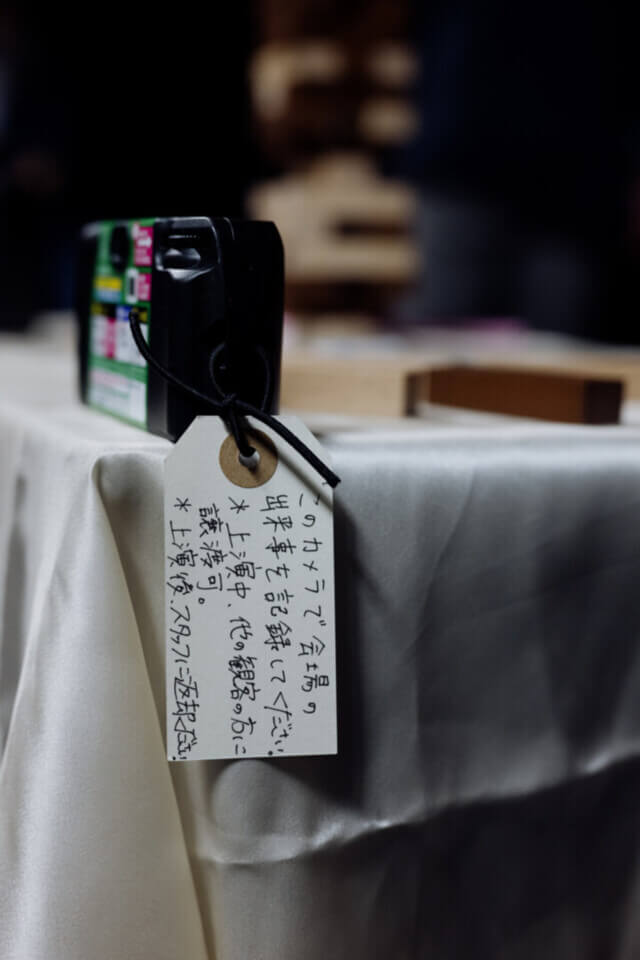 このカメラで会場の
出来事を記録してください。
＊上演中、他の観客の方に
譲渡可。
＊上演後、スタッフに返却ください。